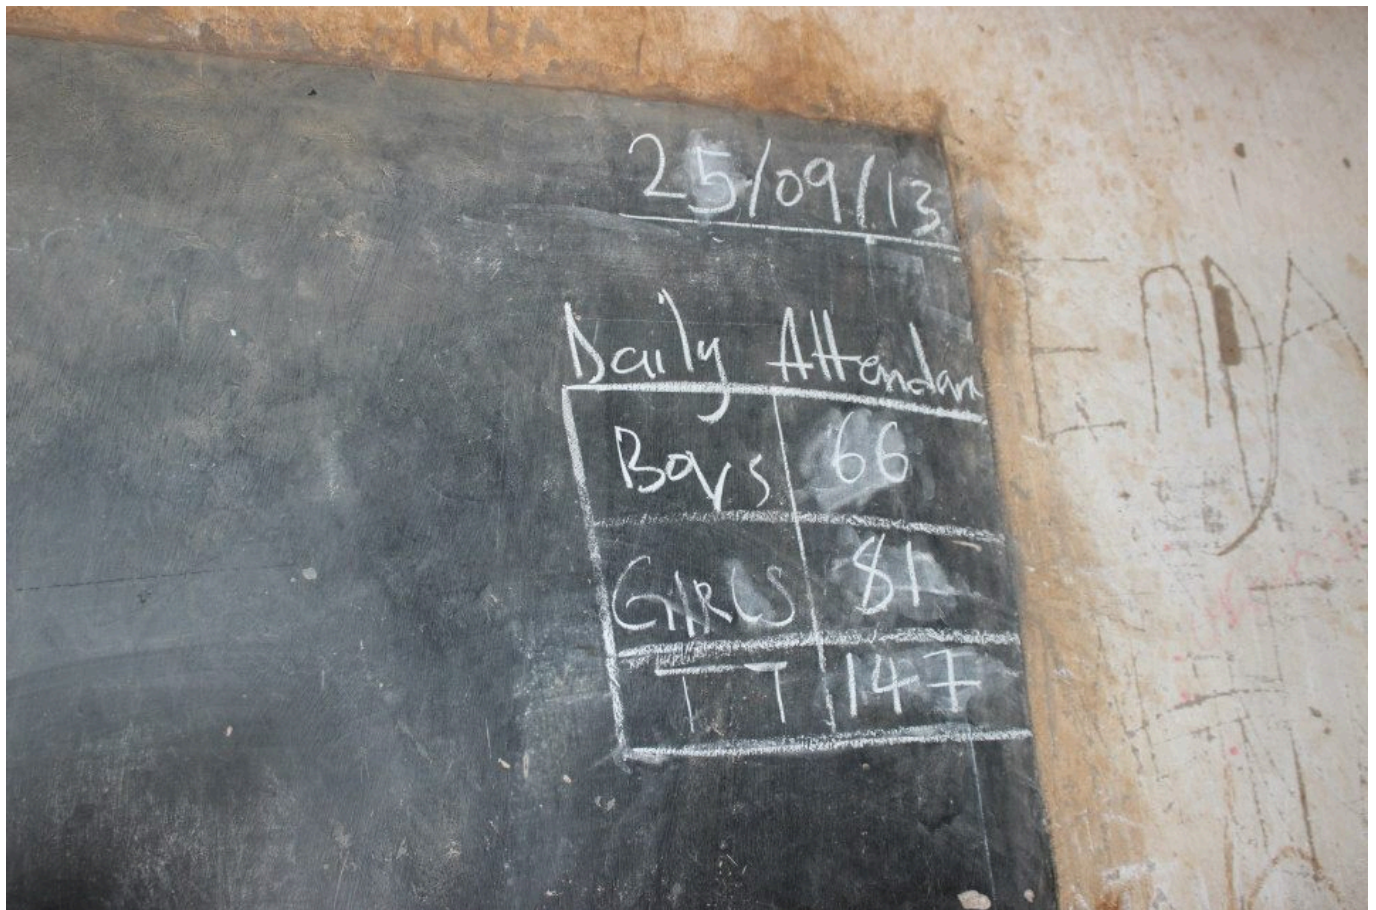 25/09/13
Daily Attendan
Boys 66
GIRLS 81
TT 147